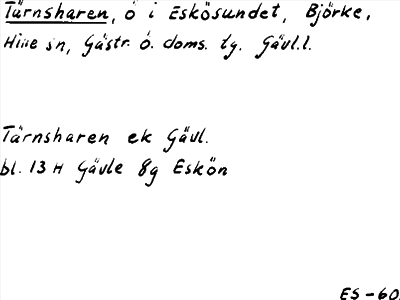 Tärnsharen, ö i Eskösundet, Björke,
Hille sn, Gästr. ö. doms. tg. Gävl.l.
Tärnsharen ek Gävl.
bl. 13 H Gävle 8g Eskön
ES-60